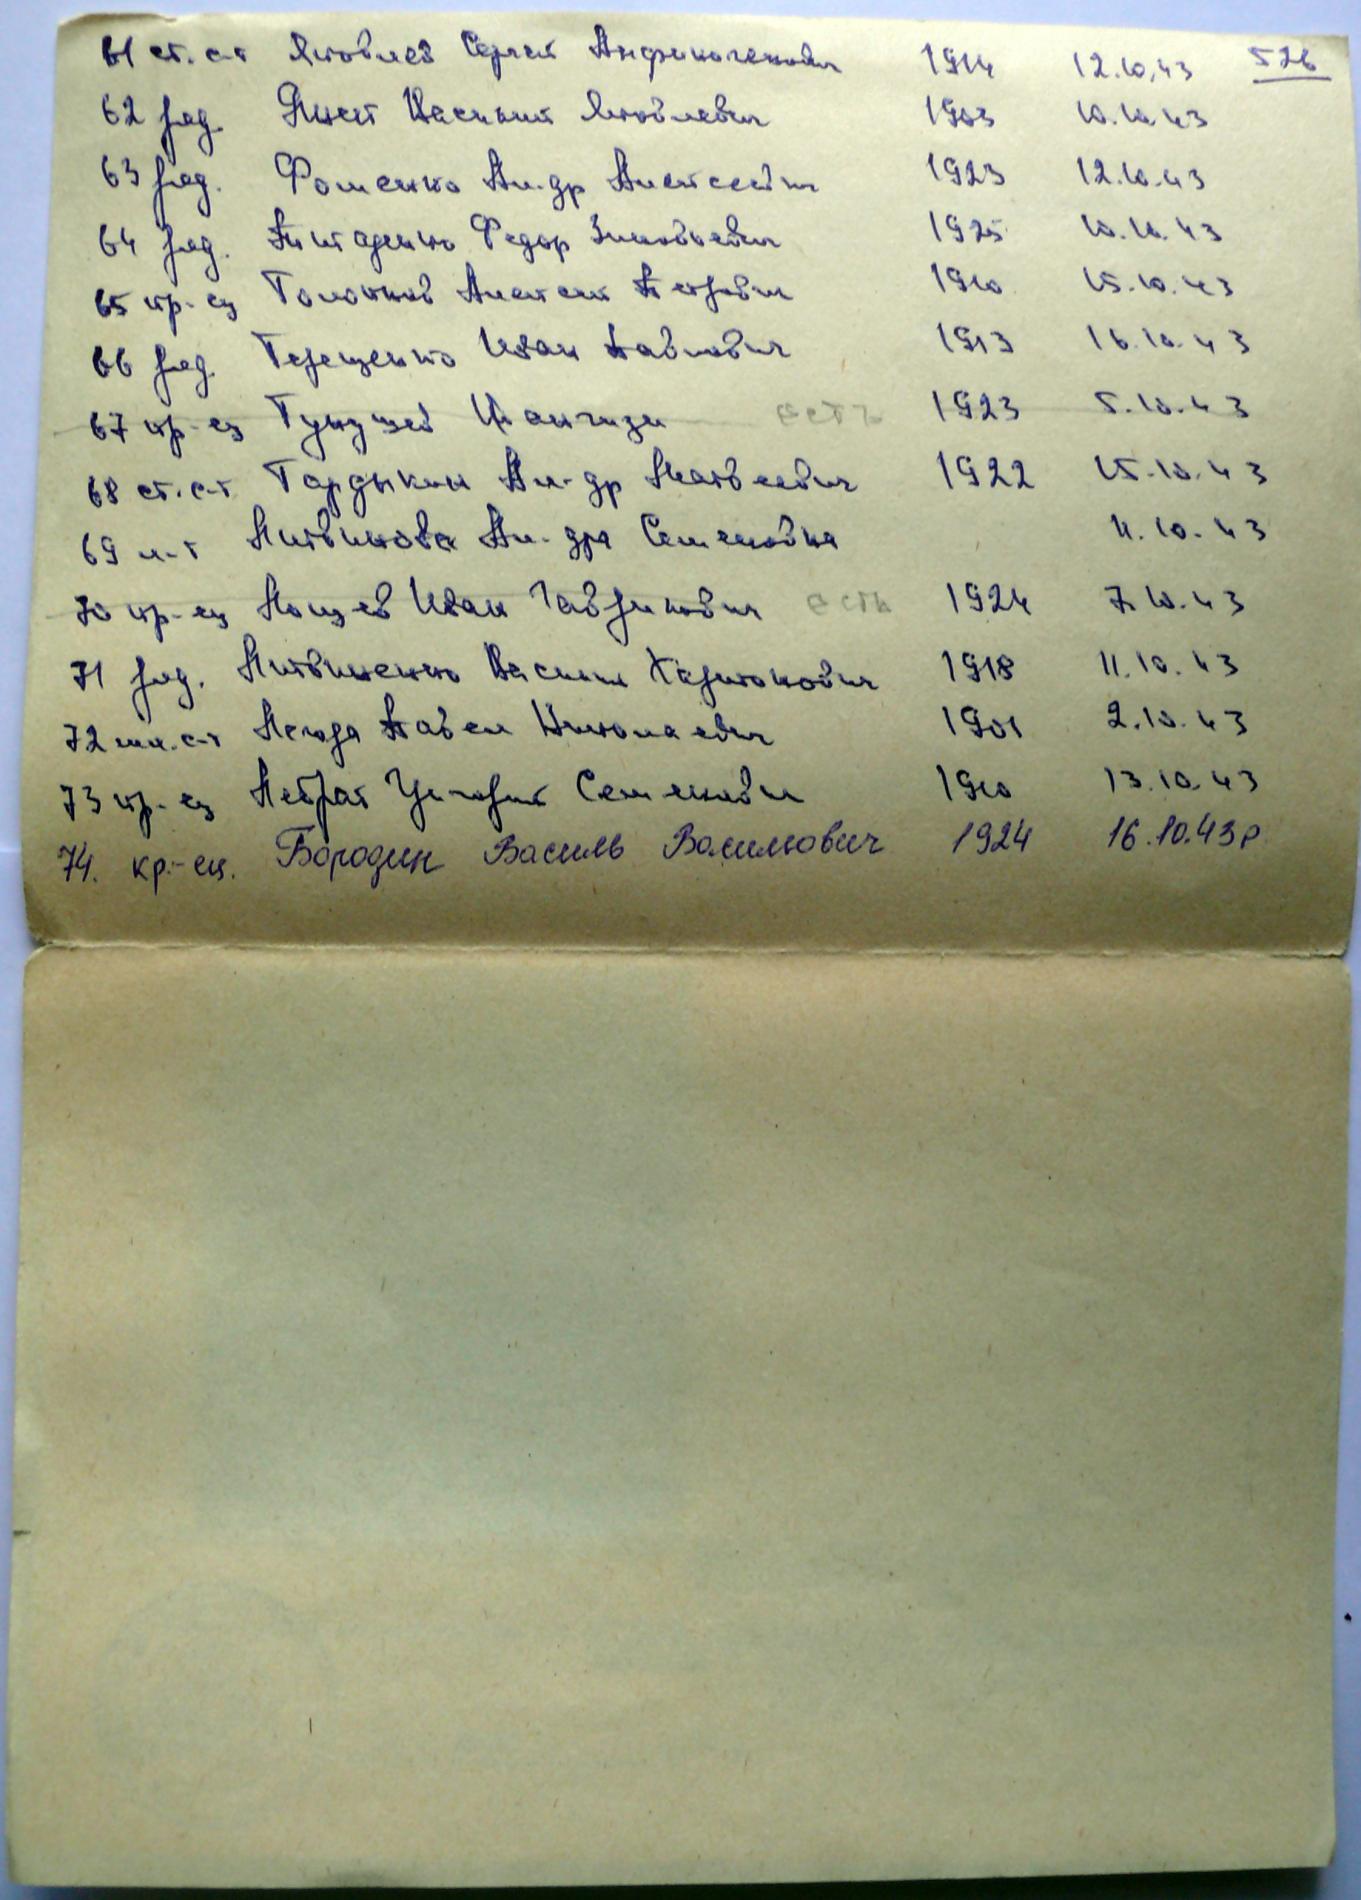 61 ст. с-т Яковлев Сергей 1914 12.10.43 526
62 ряд. Василий Яковлевич 1903 10.10.43
63 ряд. Фоменко Ал-др Алексеевич 1923 12.10.43
64 ряд. Федор Зиновьевич 1925 10.10.43
65 кр-ец Алексей Петрович 1910 15.10.43
66 ряд. Терещенко Иван Павлович 1913 16.10.43
67 кр-ец есть 1923 5.10.43
68 ст. с-т Ал-др Матвеевич 1922 15.10.43
69 л-т Литвинова Ал-дра Семеновна 11.10.43
70 кр-ец Лощев Иван Гаврилович есть 1924 7.10.43
71 ряд. Литвиненко Василий Харитонович 1918 11.10.43
72 мл. с-т Павел Николаевич 1901 2.10.43
73 кр-ец Григорий Семенович 1910 13.10.43
74. кр.-ец. Бородин Василь Васильович 1924 16.10.43р